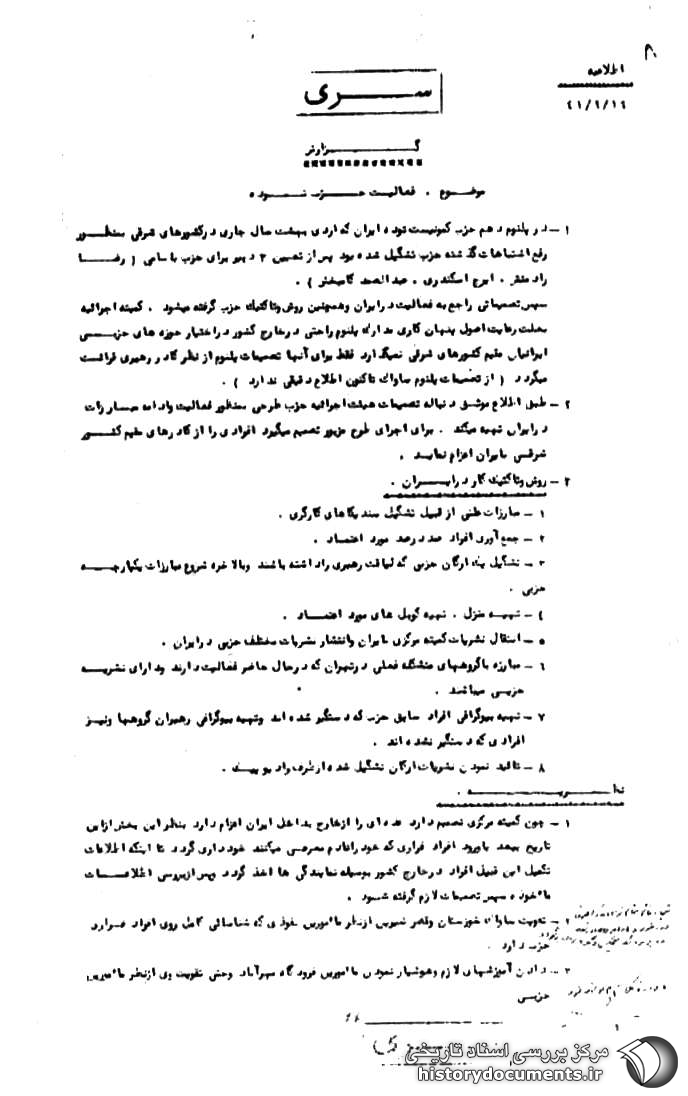 اطلاعیه
٤١/٦/١٤
سری
گزارش
موضوع . فعالیت حزب توده
١ - در پلنوم دهم حزب کمونیست توده ایران که اردی بهشت سال جاری در کشورهای شرقی منظور
رفع اشتباهات گذشته حزب تشکیل شده بود پس از تعیین ٣ دبیر برای حزب باسامی ( رضا
رادمنش . ایرج اسکندری . عبدالصمد کامبخش ) .
سپس تصمیماتی راجع به فعالیت در ایران وهمچنین روش وتاکتیک حزب گرفته میشود . کمیته اجرائیه
بعلت رعایت اصول پنهان کاری مدارک پلنوم راحتی در خارج کشور در اختیار حوزه های حزبی
ایرانیان مقیم کشورهای شرقی نمیگذارد فقط برای آنها تصمیمات پلنوم از نظر کادر رهبری قرائت
میگردد ( از تصمیمات پلنوم ساواک تاکنون اطلاع دقیقی ندارد ) .
٢ - طبق اطلاع موثق دنباله تصمیمات هیئت اجرائیه حزب طرحی منظور فعالیت وادامه مبارزات
در ایران تهیه میکند . برای اجرای طرح مزبور تصمیم میگیرد افرادی را از کادرهای مقیم کشور
شرقی بایران اعزام نماید .
٣ - روش وتاکتیک کار در ایران .
١ - مبارزات علنی از قبیل تشکیل سندیکاهای کارگری .
٢ - جمع آوری افراد صد درصد مورد اعتماد .
٣ - تشکیل یک ارگان حزبی که لیاقت رهبری راداشته باشند وبالاخره شروع مبارزات یکپارچه
حزبی .
٤ - تهیه منزل . تهیه کوپل های مورد اعتماد .
٥ - انتقال نشریات کمیته مرکزی بایران وانتشار نشریات مختلف حزبی در ایران .
٦ - مبارزه باگروههای متشکله فعلی در تهران که در حال حاضر فعالیت دارند ودارای نشریه
حزبی میباشند .
٧ - تهیه بیوگرافی افراد سابق حزب که دستگیر شده اند وتهیه بیوگرافی رهبران گروهها ونیز
افرادی که دستگیر نشده اند .
٨ - تائید نمودن نشریات ارگان تشکیل شده ازطرف رادیو پیک .
نظریه .
١ - چون کمیته مرکزی تصمیم دارد عده ای را ازخارج بداخل ایران اعزام دارد بنظر این بخش ازاین
تاریخ ببعد باورود افراد فراری که خود رانادم معرفی میکنند خودداری گردد تا اینکه اطلاعات
تکمیل این قبیل افراد در خارج کشور بوسیله نمایندگی ها اخذ گردد وپس ازبررسی اطلاعات
ماخوذه سپس تصمیمات لازم گرفته شود .
٢ - تقویت ساواک خوزستان وقصر شیرین ازنظر مامورین نفوذی که شناسائی کامل روی افراد فراری
حزب دارد .
٣ - دادن آموزشهای لازم وهوشیار نمودن مامورین فرودگاه مهرآباد وحتی تقویت وی ازنظر مامورین
حزبی
سری
مرکز بررسی اسناد تاریخی
historydocuments.ir